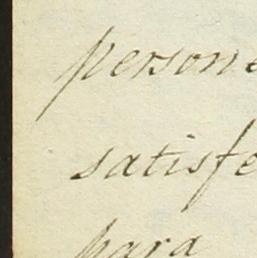 persone
satisfe
para